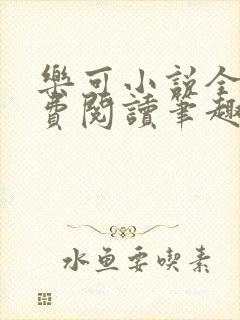 樂可小說全
費閱讀筆趣
水鱼要喫素